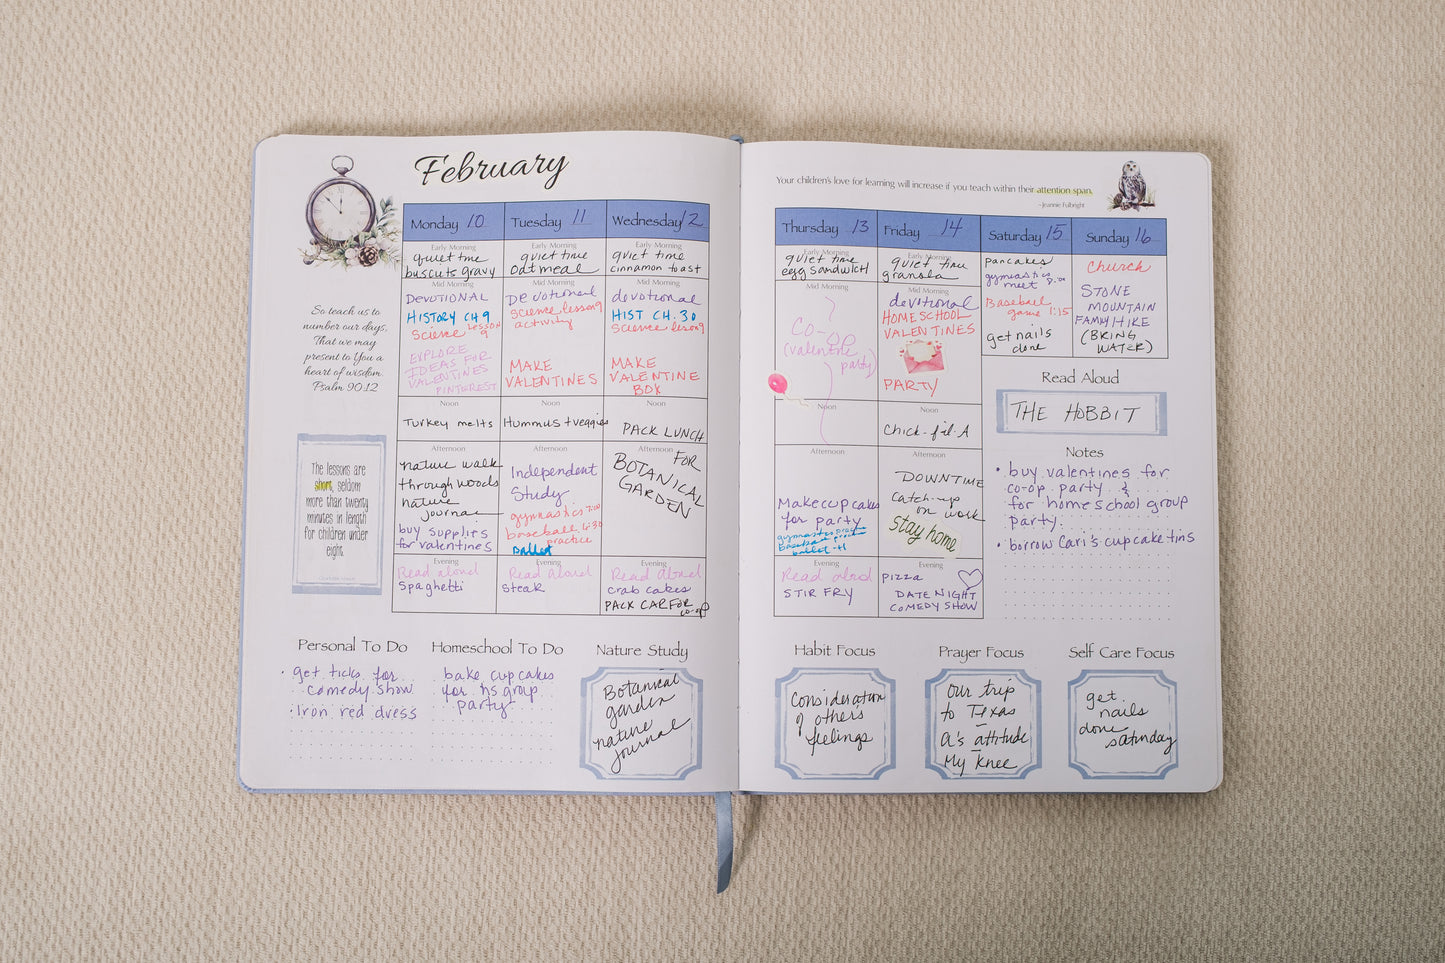 February
So teach us to
number our days,
That we may
present to You a
heart of wisdom.
Psalm 90:12
The lessons are
short, seldom
more than twenty
minutes in length
for children under
eight.
Monday 10
Early Morning
quiet time
biscuits gravy
Mid Morning
DEVOTIONAL
HISTORY CH 9
Science LESSON
9
EXPLORE
IDEAS FOR
VALENTINES
PINTEREST
Noon
Turkey melts
Afternoon
nature walk
through woods
nature
journal
buy supplies
for valentines
Evening
Read aloud
Spaghetti
Tuesday 11
Early Morning
quiet time
oatmeal
Mid Morning
Devotional
Science lesson 9
activity
MAKE
VALENTINES
Noon
Hummus + veggies
Afternoon
Independent
Study
gymnastics 7:00
baseball 6:30
practice
Ballet
Evening
Read aloud
Steak
Wednesday 12
Early Morning
quiet time
cinnamon toast
Mid Morning
devotional
HIST CH. 30
Science lesson 9
MAKE
VALENTINE
BOX
Noon
PACK LUNCH
Afternoon
FOR
BOTANICAL
GARDEN
Evening
Read aloud
crab cakes
PACK CAR FOR
co-op
Personal To Do
· get ticks for
comedy show
· Iron red dress
Homeschool To Do
bake cupcakes
for hs group
party
Nature Study
Botanical
garden
nature
journal
Your children's love for learning will increase if you teach within their attention span.
~ Jeannie Fulbright
Thursday 13
Early Morning
quiet time
egg sandwich
Mid Morning
Co-op
(valentine
party)
Noon
Afternoon
Make cupcakes
for party
ballet -H
Evening
Read aloud
STIR FRY
Friday 14
Early Morning
quiet time
granola
Mid Morning
devotional
HOMESCHOOL
VALENTINES
PARTY
Noon
Chick-fil-A
Afternoon
DOWNTIME
Catch-up
on work
stay home
Evening
pizza
DATE NIGHT
COMEDY SHOW
Saturday 15
pancakes
gymnastics
meet 8:00
Baseball
game 1:15
get nails
done
Sunday 16
Church
STONE
MOUNTAIN
FAMILY HIKE
(BRING
WATER)
Read Aloud
THE HOBBIT
Notes
• buy valentines for
co-op party &
for homeschool group
party.
• borrow Cari's cupcake tins
Habit Focus
Consideration
of other's
feelings
Prayer Focus
Our trip
to Texas
A's attitude
My knee
Self Care Focus
get
nails
done
saturday